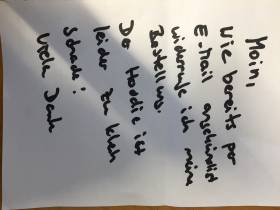 Moin,
wie bereits per
E-Mail angekündigt
widerrufe ich meine
Bestellung.
Der Hoodie ist
leider zu klein
Schade!
Vielen Dank